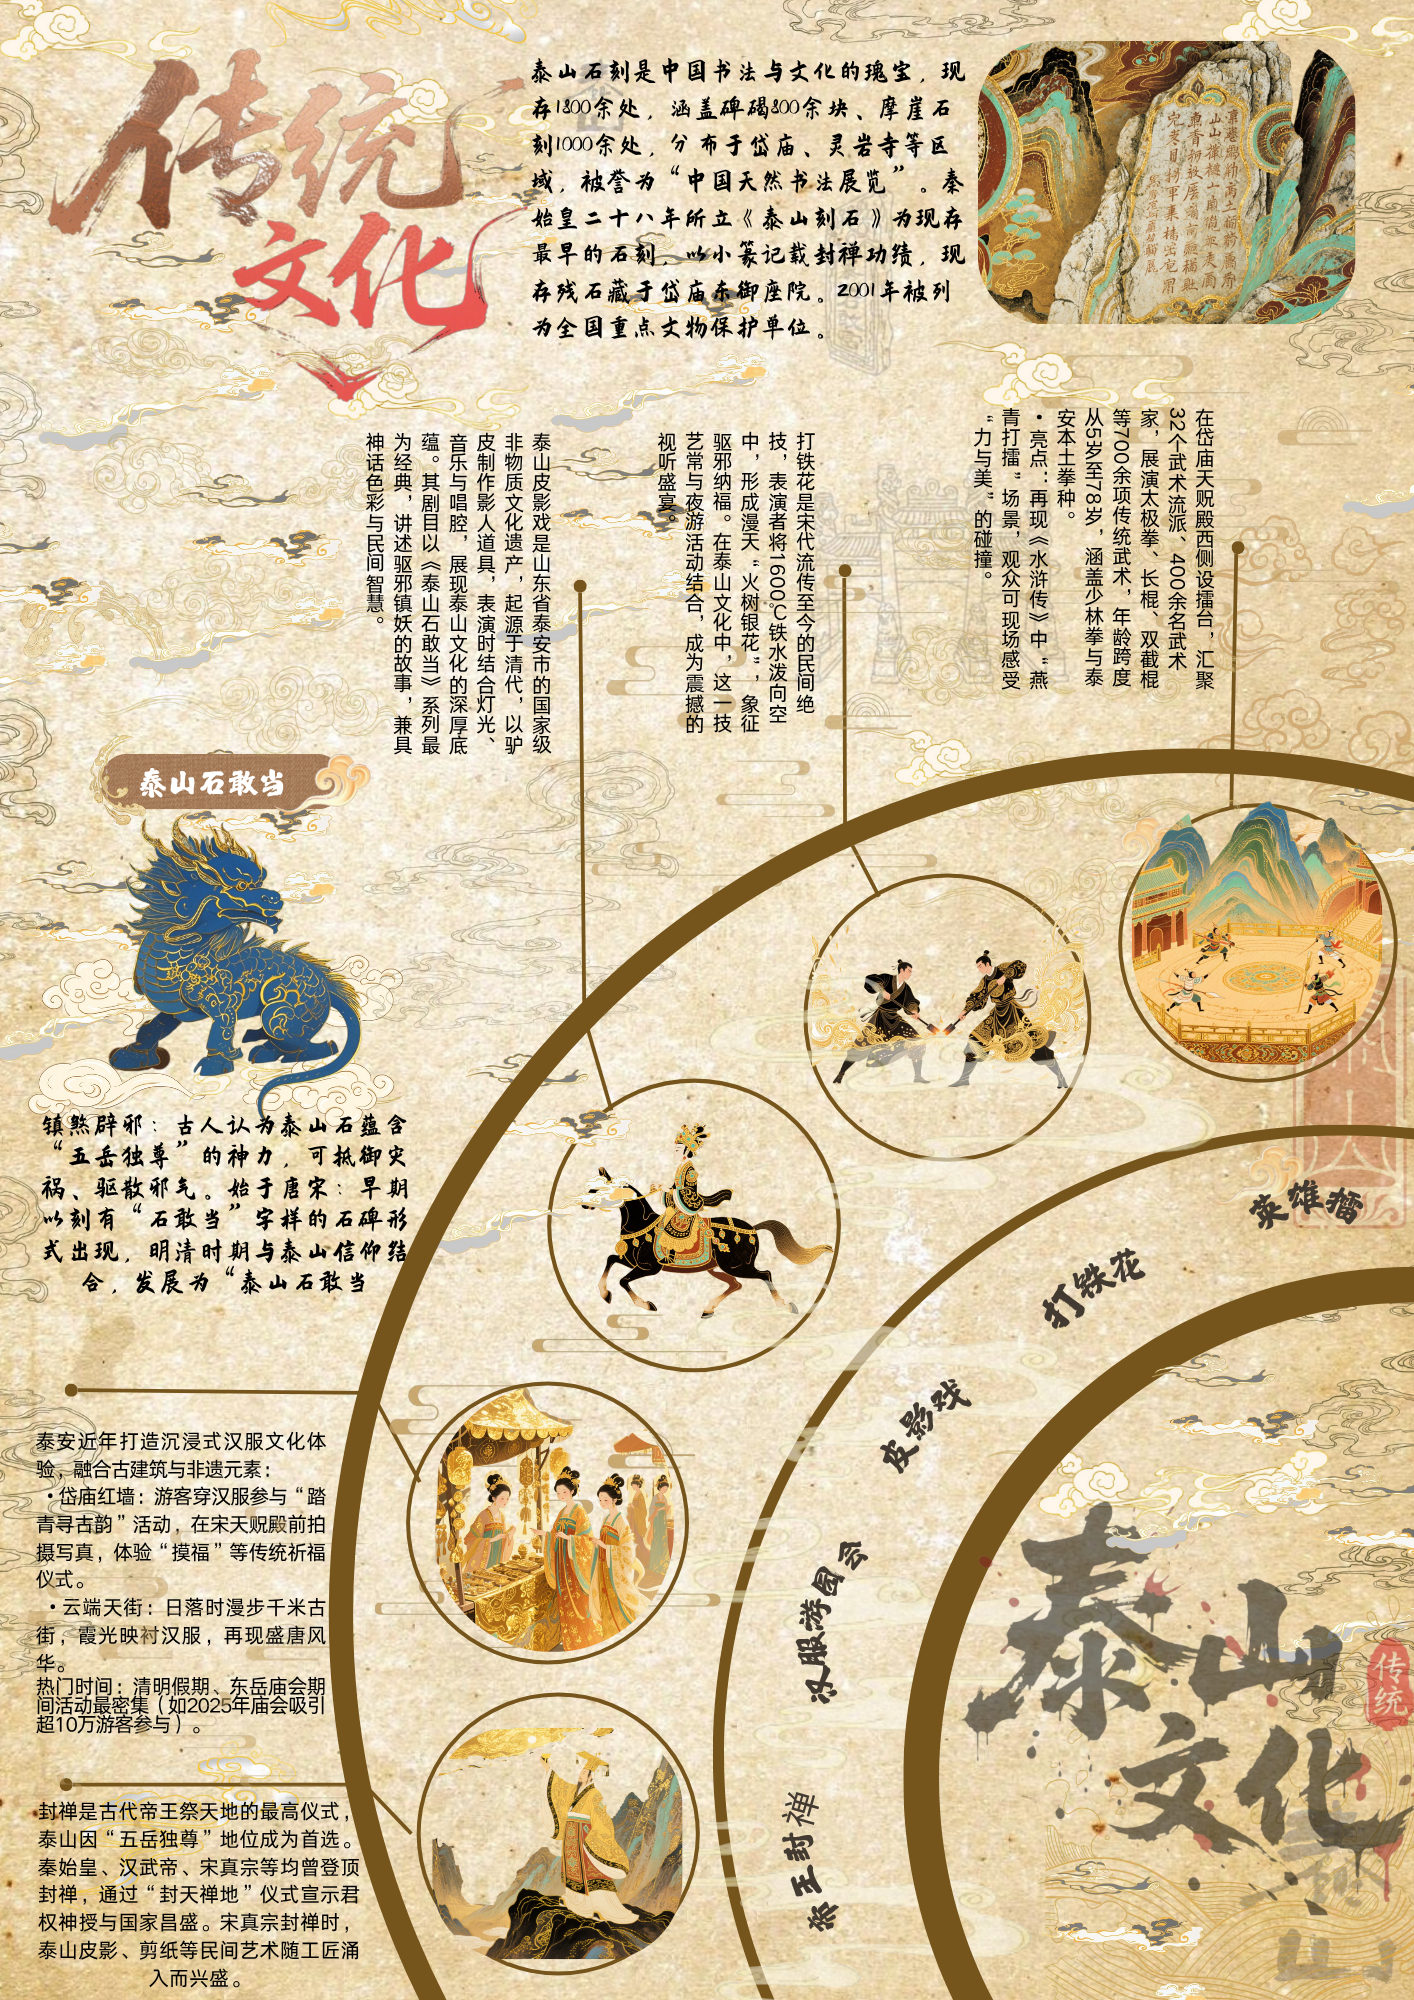 传统
文化
泰山石刻是中国书法与文化的瑰宝，现
存1800余处，涵盖碑碣800余块、摩崖石
刻1000余处，分布于岱庙、灵岩寺等区
域，被誉为“中国天然书法展览”。秦
始皇二十八年所立《泰山刻石》为现存
最早的石刻，以小篆记载封禅功绩，现
存残石藏于岱庙东御座院。2001年被列
为全国重点文物保护单位。
在岱庙天贶殿西侧设擂台，汇聚
32个武术流派、400余名武术
家，展演太极拳、长棍、双截棍
等700余项传统武术，年龄跨度
从5岁至78岁，涵盖少林拳与泰
安本土拳种。
•亮点：再现《水浒传》中“燕
青打擂”场景，观众可现场感受
“力与美”的碰撞。
打铁花是宋代流传至今的民间绝
技，表演者将1600℃铁水泼向空
中，形成漫天“火树银花”，象征
驱邪纳福。在泰山文化中，这一技
艺常与夜游活动结合，成为震撼的
视听盛宴。
泰山皮影戏是山东省泰安市的国家级
非物质文化遗产，起源于清代，以驴
皮制作影人道具，表演时结合灯光、
音乐与唱腔，展现泰山文化的深厚底
蕴。其剧目以《泰山石敢当》系列最
为经典，讲述驱邪镇妖的故事，兼具
神话色彩与民间智慧。
泰山石敢当
镇煞辟邪：古人认为泰山石蕴含
“五岳独尊”的神力，可抵御灾
祸、驱散邪气。始于唐宋：早期
以刻有“石敢当”字样的石碑形
式出现，明清时期与泰山信仰结
合，发展为“泰山石敢当
泰安近年打造沉浸式汉服文化体
验，融合古建筑与非遗元素：
•岱庙红墙：游客穿汉服参与“踏
青寻古韵”活动，在宋天贶殿前拍
摄写真，体验“摸福”等传统祈福
仪式。
•云端天街：日落时漫步千米古
街，霞光映衬汉服，再现盛唐风
华。
热门时间：清明假期、东岳庙会期
间活动最密集（如2025年庙会吸引
超10万游客参与）。
封禅是古代帝王祭天地的最高仪式，
泰山因“五岳独尊”地位成为首选。
秦始皇、汉武帝、宋真宗等均曾登顶
封禅，通过“封天禅地”仪式宣示君
权神授与国家昌盛。宋真宗封禅时，
泰山皮影、剪纸等民间艺术随工匠涌
入而兴盛。
英雄擂
打铁花
皮影戏
汉服游园会
帝王封禅
泰山
文化
传统